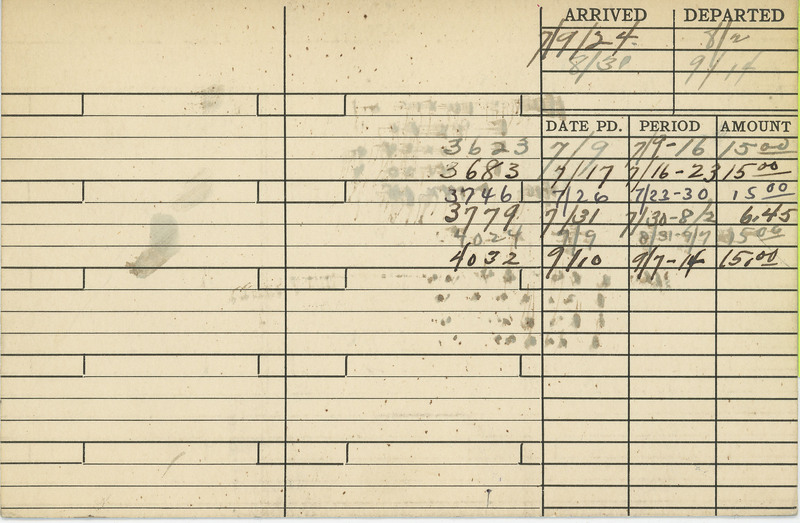 ARRIVED DEPARTED
7/9/24 8/2
8/31 9/14
DATE PD. PERIOD AMOUNT
3623 7/9 7/9-16 15 00
3683 7/17 7/16-23 15 00
3746 7/26 7/23-30 15 00
3779 7/31 7/30-8/2 6.45
4024 9/9 8/31-9/7 15 00
4032 9/10 9/7-14 15.00